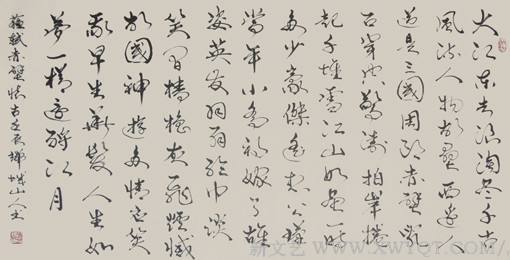 大江东去浪淘尽千古
风流人物故垒西边人
道是三國周郎赤壁乱
石穿空惊涛拍岸捲
起千堆雪江山如画一時
多少豪傑遥想公瑾
當年小乔初嫁了雄
姿英发羽扇纶巾谈
笑间檣橹灰飛煙滅
故國神游多情应笑
我早生華髮人生如
夢一樽还酹江月
蘇軾赤壁懷古壬辰山人书
新文艺 WWW.XWYQT.COM